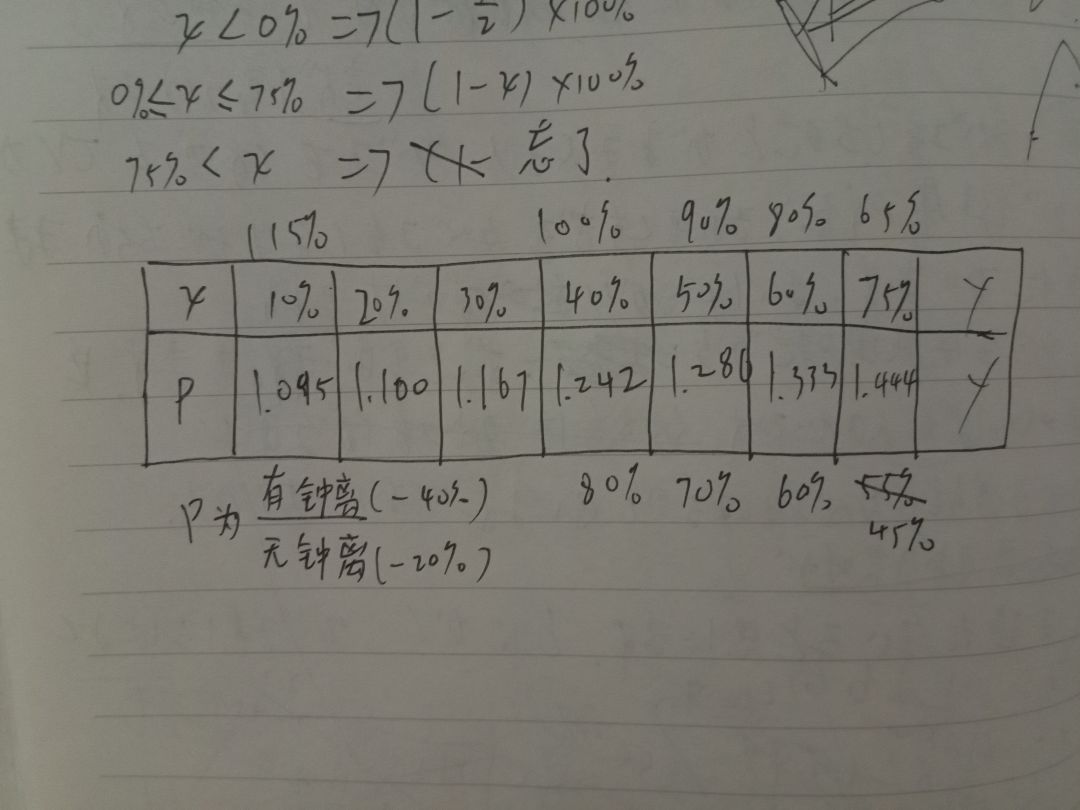 x < 0% => (1 - x/2) × 100%
0% ≤ x ≤ 75% => (1 - x) × 100%
75% < x => 忘了.
115% 100% 90% 80% 65%
x 10% 20% 30% 40% 50% 60% 75% Y
P 1.095 1.100 1.167 1.242 1.286 1.333 1.444 Y
80% 70% 60% 55% 45%
P为 有钟离(-40%)
无钟离(-20%)